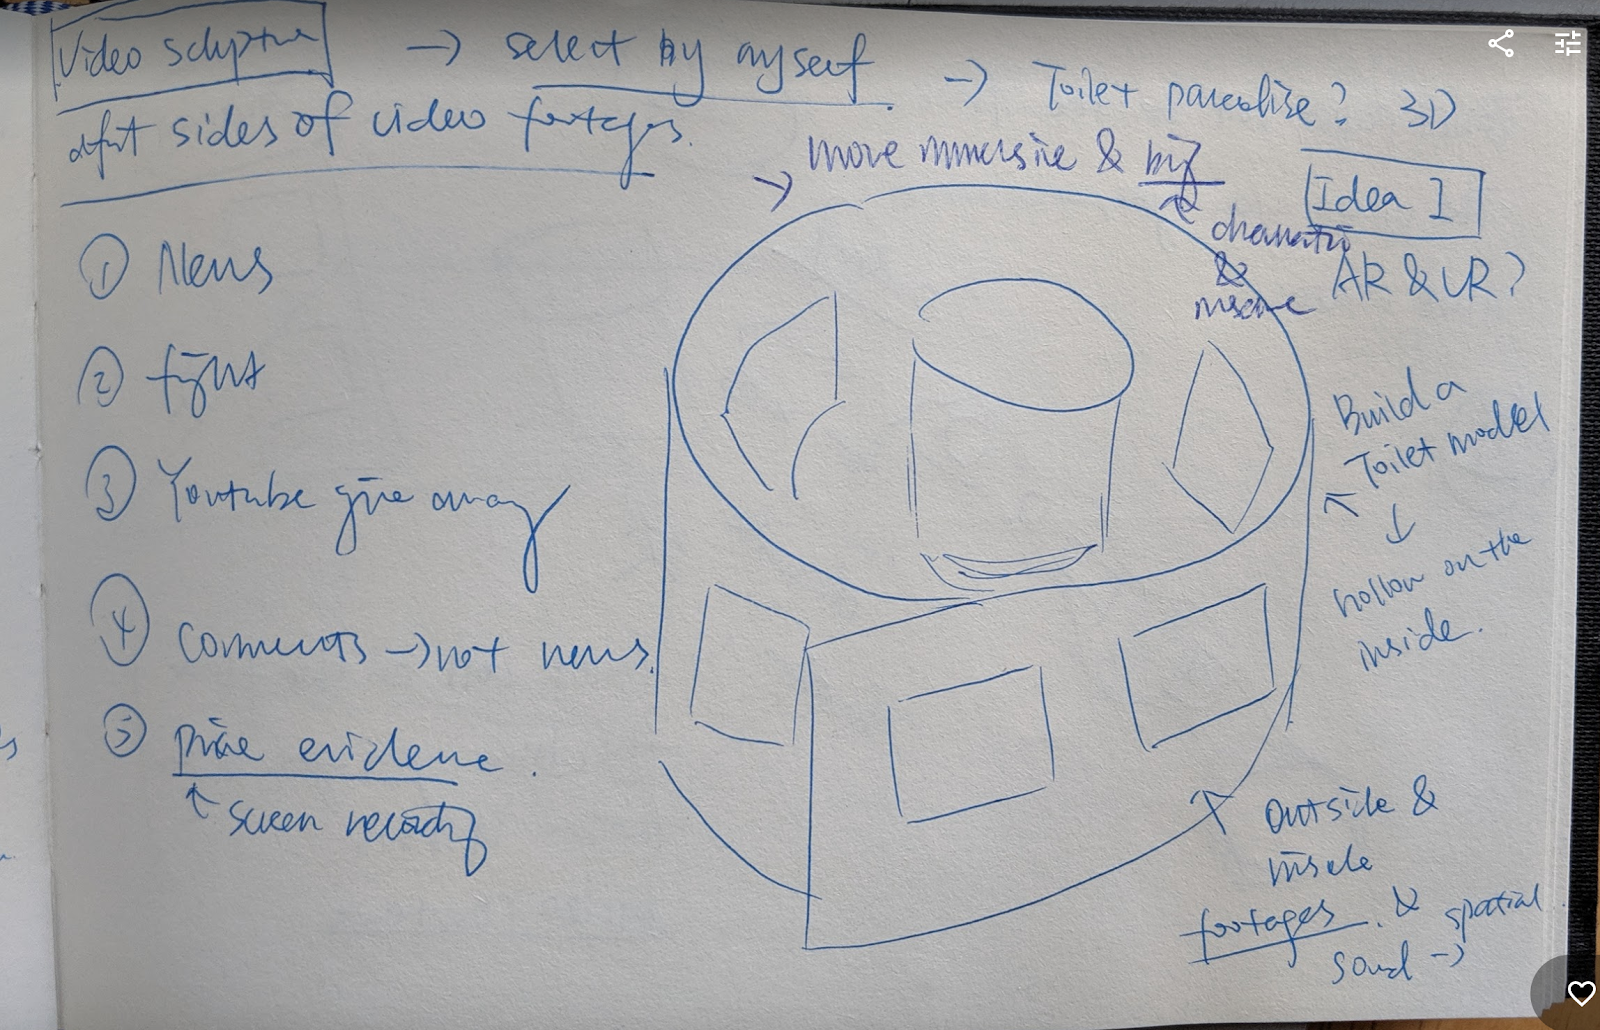 Video sclpture → select by myself → Toilet paradise? 3D
dfnt sides of video footages.
→ more immersive & big
Idea 1
dramatic
&
AR & VR?
① News
② fight
③ Youtube give away
④ Comments → not news.
⑤ price evidence.
↑ screen recording
Build a
Toilet model
↓
hollow on the
inside.
outside &
inside
footages. & spatial
sound →